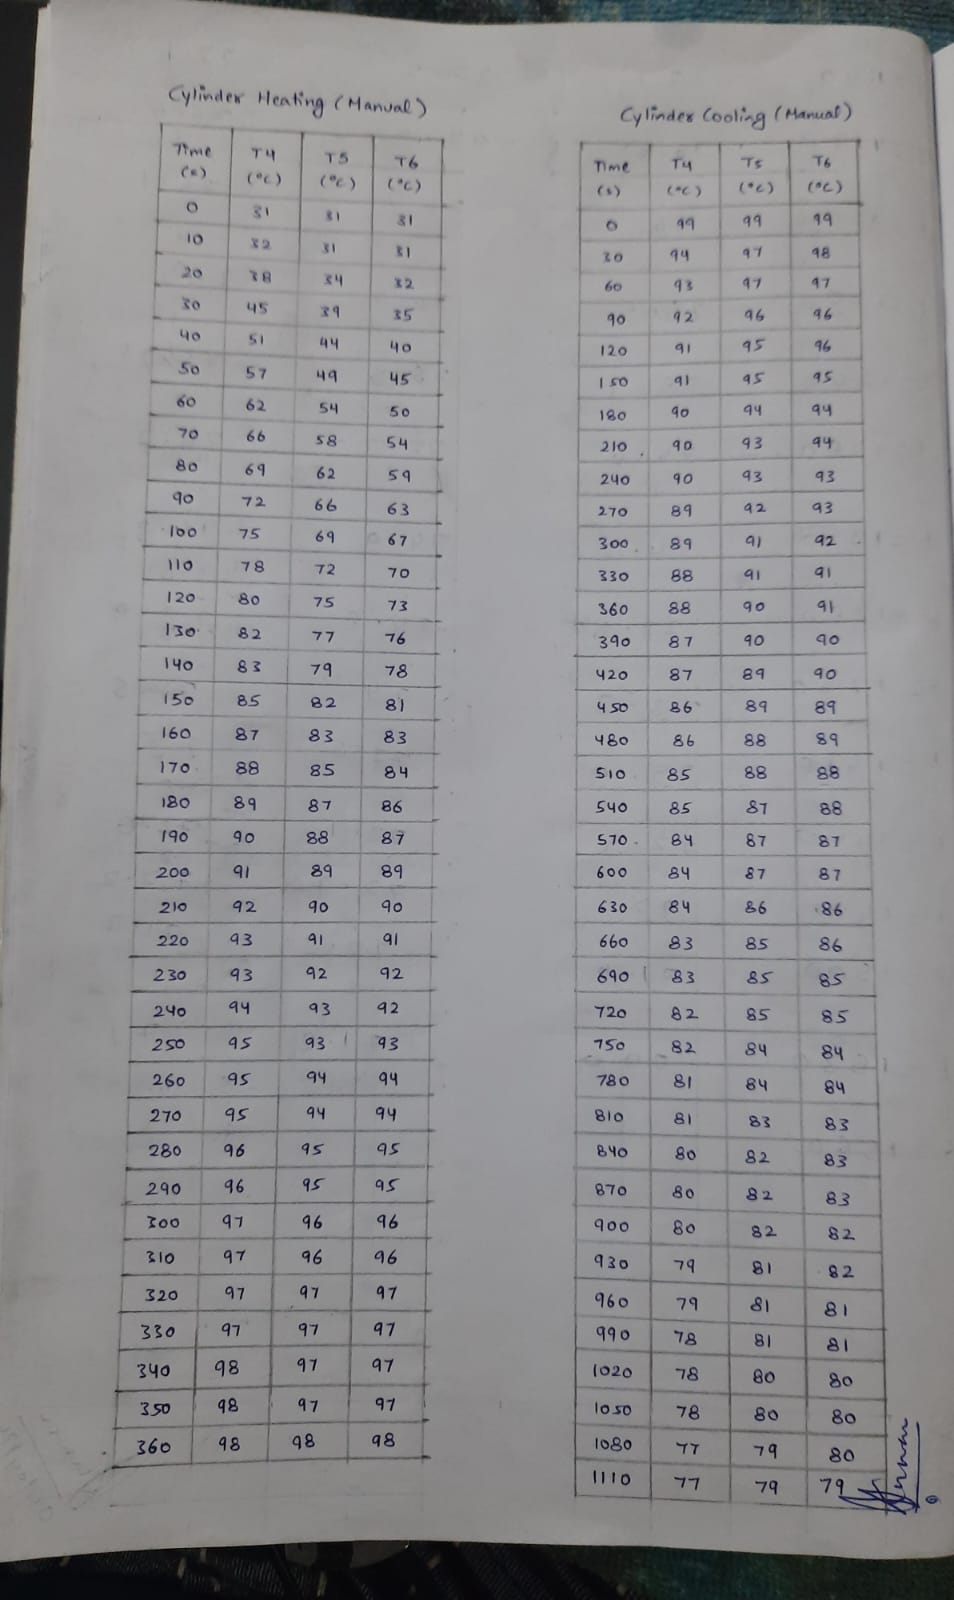 Cylinder Heating (Manual)
Time (s) T4 (°C) T5 (°C) T6 (°C)
0 31 31 31
10 32 31 31
20 38 34 32
30 45 39 35
40 51 44 40
50 57 49 45
60 62 54 50
70 66 58 54
80 69 62 59
90 72 66 63
100 75 69 67
110 78 72 70
120 80 75 73
130 82 77 76
140 83 79 78
150 85 82 81
160 87 83 83
170 88 85 84
180 89 87 86
190 90 88 87
200 91 89 89
210 92 90 90
220 93 91 91
230 93 92 92
240 94 93 92
250 95 93 93
260 95 94 94
270 95 94 94
280 96 95 95
290 96 95 95
300 97 96 96
310 97 96 96
320 97 97 97
330 97 97 97
340 98 97 97
350 98 97 97
360 98 98 98
Cylinder Cooling (Manual)
Time (s) T4 (°C) T5 (°C) T6 (°C)
0 99 99 99
30 94 97 98
60 93 97 97
90 92 96 96
120 91 95 96
150 91 95 95
180 90 94 94
210 90 93 94
240 90 93 93
270 89 92 93
300 89 91 92
330 88 91 91
360 88 90 91
390 87 90 90
420 87 89 90
450 86 89 89
480 86 88 89
510 85 88 88
540 85 87 88
570 84 87 87
600 84 87 87
630 84 86 86
660 83 85 86
690 83 85 85
720 82 85 85
750 82 84 84
780 81 84 84
810 81 83 83
840 80 82 83
870 80 82 83
900 80 82 82
930 79 81 82
960 79 81 81
990 78 81 81
1020 78 80 80
1050 78 80 80
1080 77 79 80
1110 77 79 79